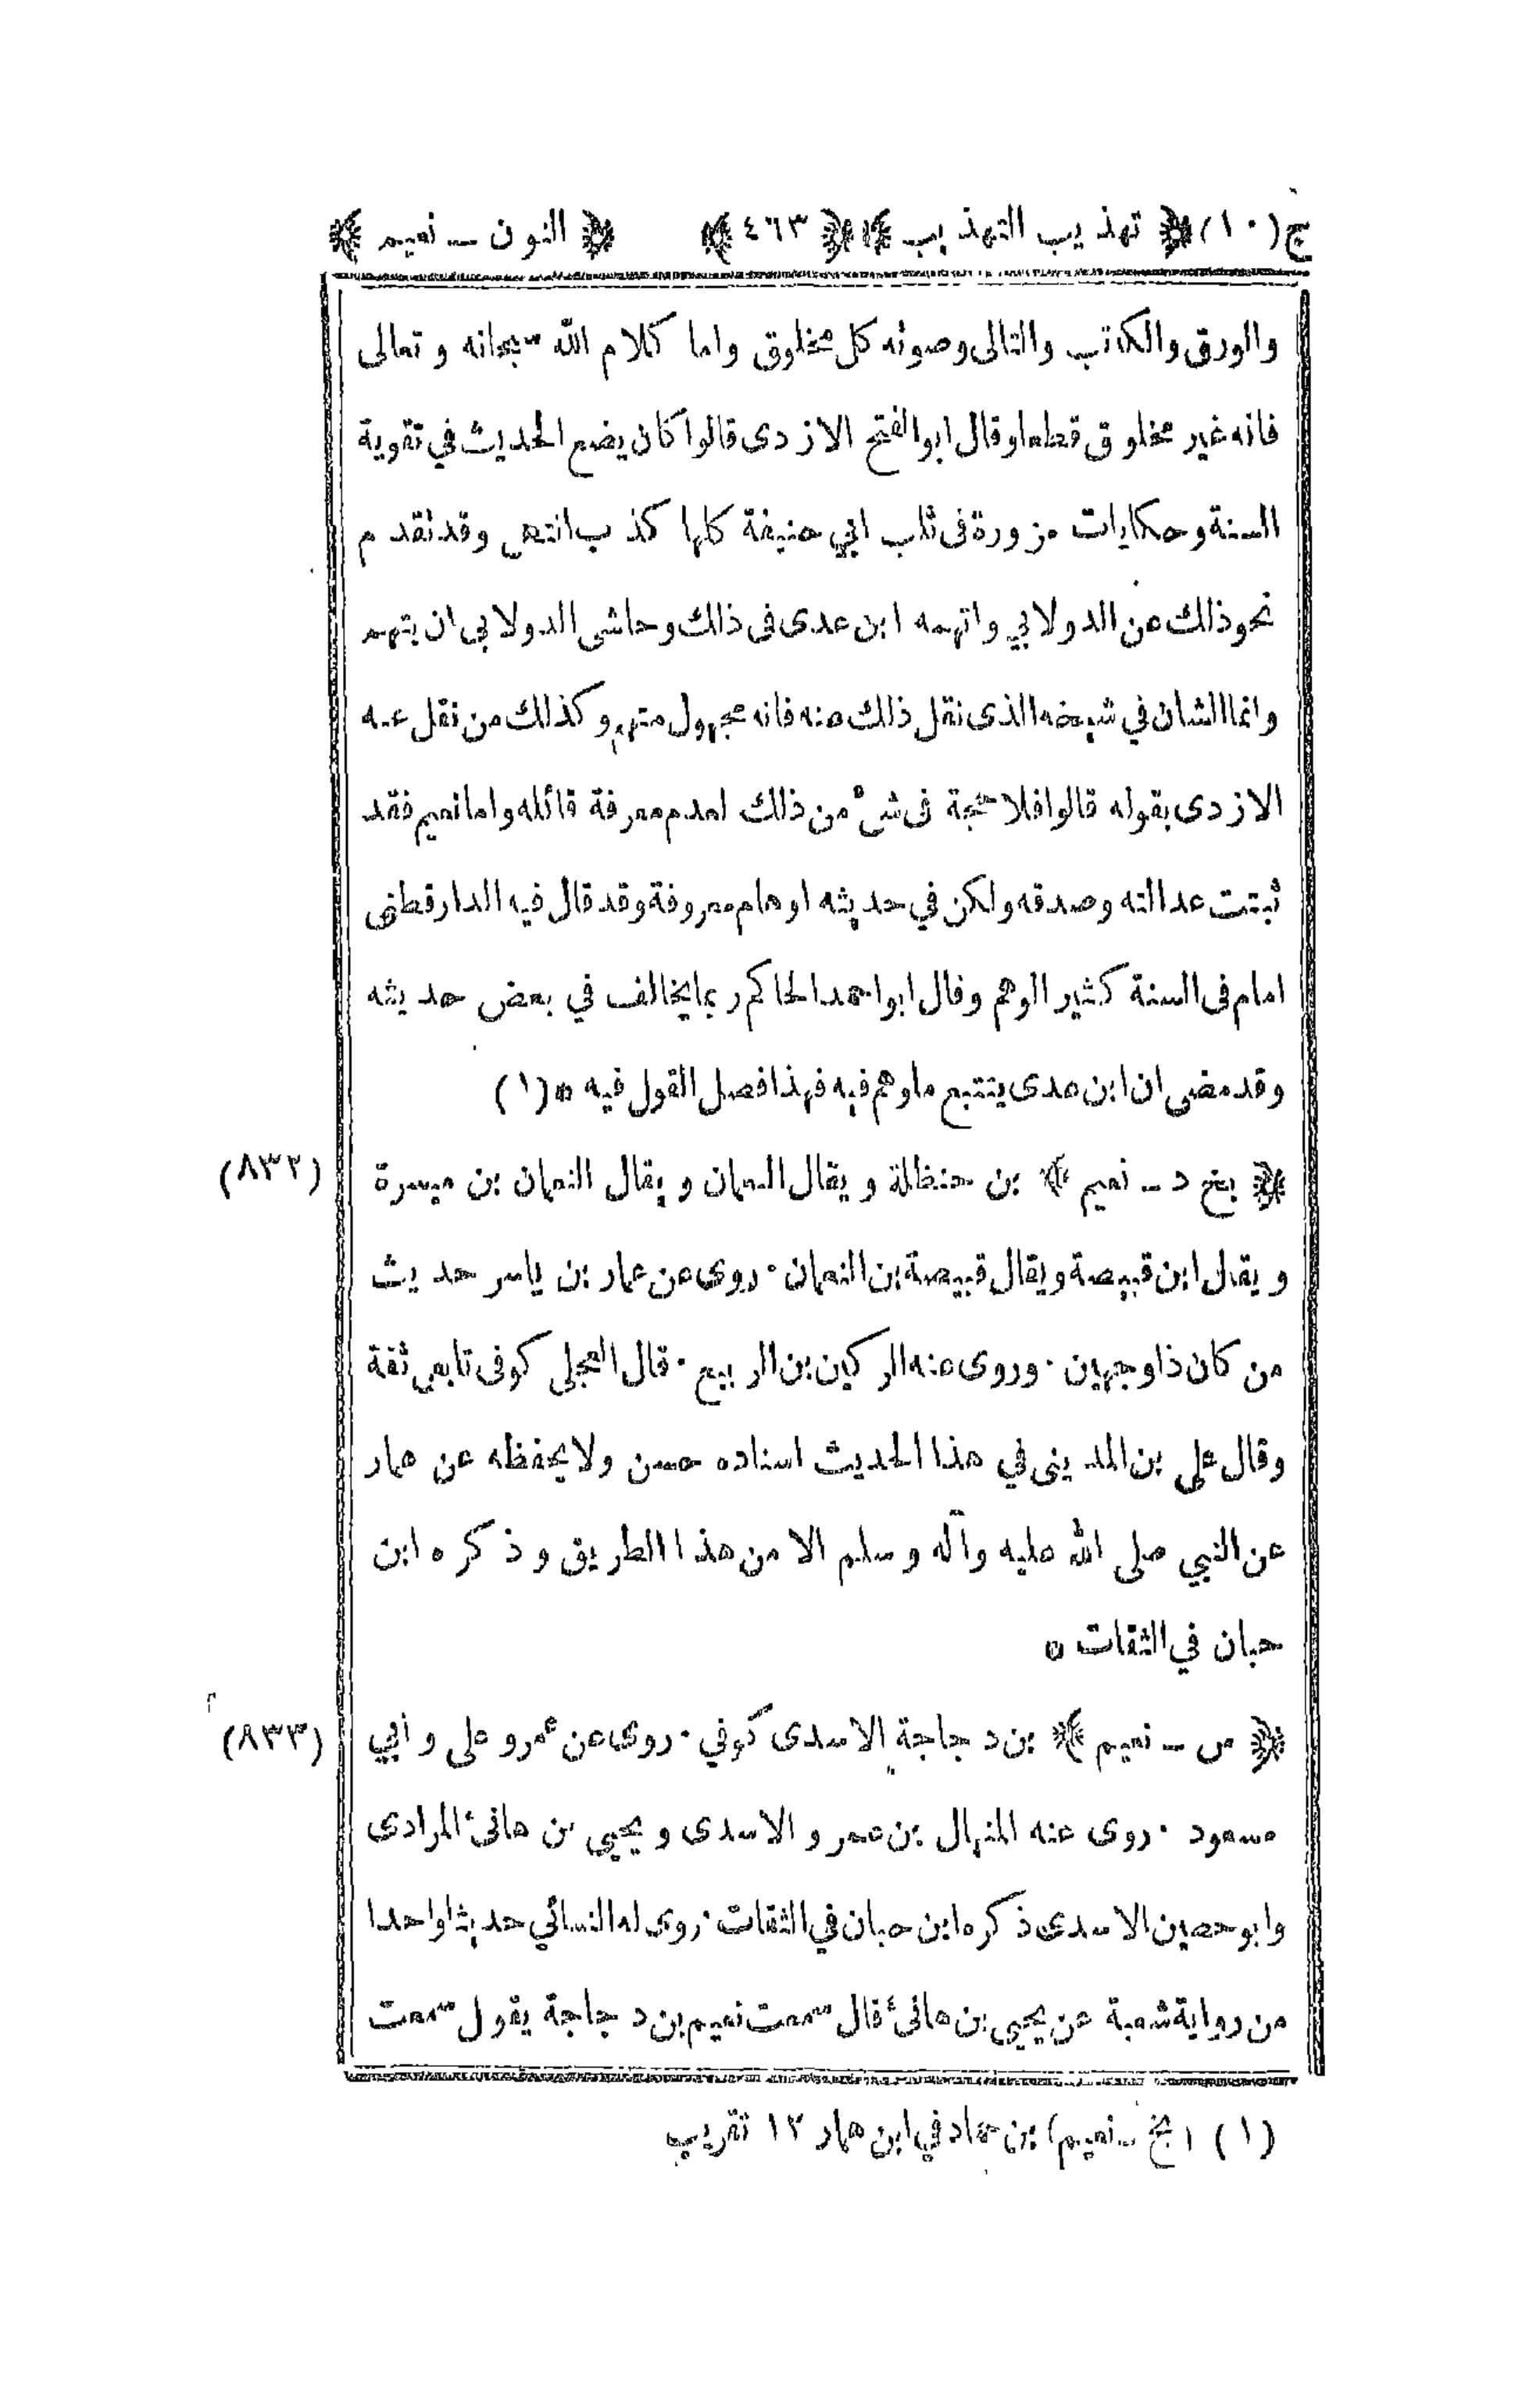 ج(١٠) ﴿ تهذيب التهذيب ﴾ ﴿ ٤٦٣ ﴾ ﴿ النون ــ نعيم ﴾
والورق والكاتب والتالى وصوته كل مخلوق واما كلام الله سبحانه وتعالى
فانه غير مخلوق قطعا وقال ابوالفتح الازدى قالوا كان يضع الحديث في تقوية
السنة وحكايات مزورة فى ثلب ابي حنيفة كلها كذب انتهى وقد تقدم
نحو ذلك عن الدولابي واتهمه ابن عدى فى ذلك وحاشى الدولابى ان يتهم
وانما الشان في شيخه الذى نقل ذلك عنه فانه مجهول متهم وكذلك من نقل عنه
الازدى بقوله قالوا فلا حجة فى شئ من ذلك لعدم معرفة قائله واما نعيم فقد
ثبتت عدالته وصدقه ولكن في حديثه اوهام معروفة وقد قال فيه الدارقطنى
امام فى السنة كثير الوهم وقال ابواحمد الحاكم ربما يخالف في بعض حديثه
وقد مضى ان ابن عدى يتتبع ما وهم فيه فهذا فصل القول فيه * (١)
﴿ بخ د ــ نعيم ﴾ بن حنظلة ويقال النعمان ويقال النعمان بن ميسرة (٨٣٢)
ويقال ابن قبيصة ويقال قبيصة بن النعمان ٠ روى عن عمار بن ياسر حديث
من كان ذا وجهين ٠ وروى عنه الركين بن الربيع ٠ قال العجلى كوفى تابعى ثقة
وقال على بن المدينى في هذا الحديث اسناده حسن ولا يحفظه عن عمار
عن النبي صلى الله عليه وآله وسلم الا من هذا الطريق وذكره ابن
حبان في الثقات *
﴿ س ــ نعيم ﴾ بن دجاجة الاسدى كوفي ٠ روى عن عمر وعلى وابي (٨٣٣)
مسعود ٠ روى عنه المنهال بن عمرو الاسدى ويحيى بن هانئ المرادى
وابو حصين الاسدى ذكره ابن حبان في الثقات ٠ روى له النسائي حديثا واحدا
من رواية شعبة عن يحيى بن هانئ قال سمعت نعيم بن دجاجة يقول سمعت
(١) (بخ ــ نعيم) بن حماد في ابن همار ١٢ تقريب